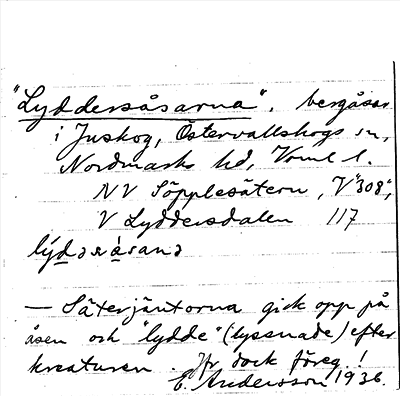 "Lyddersåsarna", bergåsar
i Juskog, Östervallskogs sn,
Nordmarks hd, Vrml l.
NV Säpplesätern, V "308",
V Lyddersdalen 117
— Säterjäntorna gick opp på
åsen och "lydde" (lyssnade) efter
kreaturen. Jfr dock föreg.!
E. Andersson 1936.